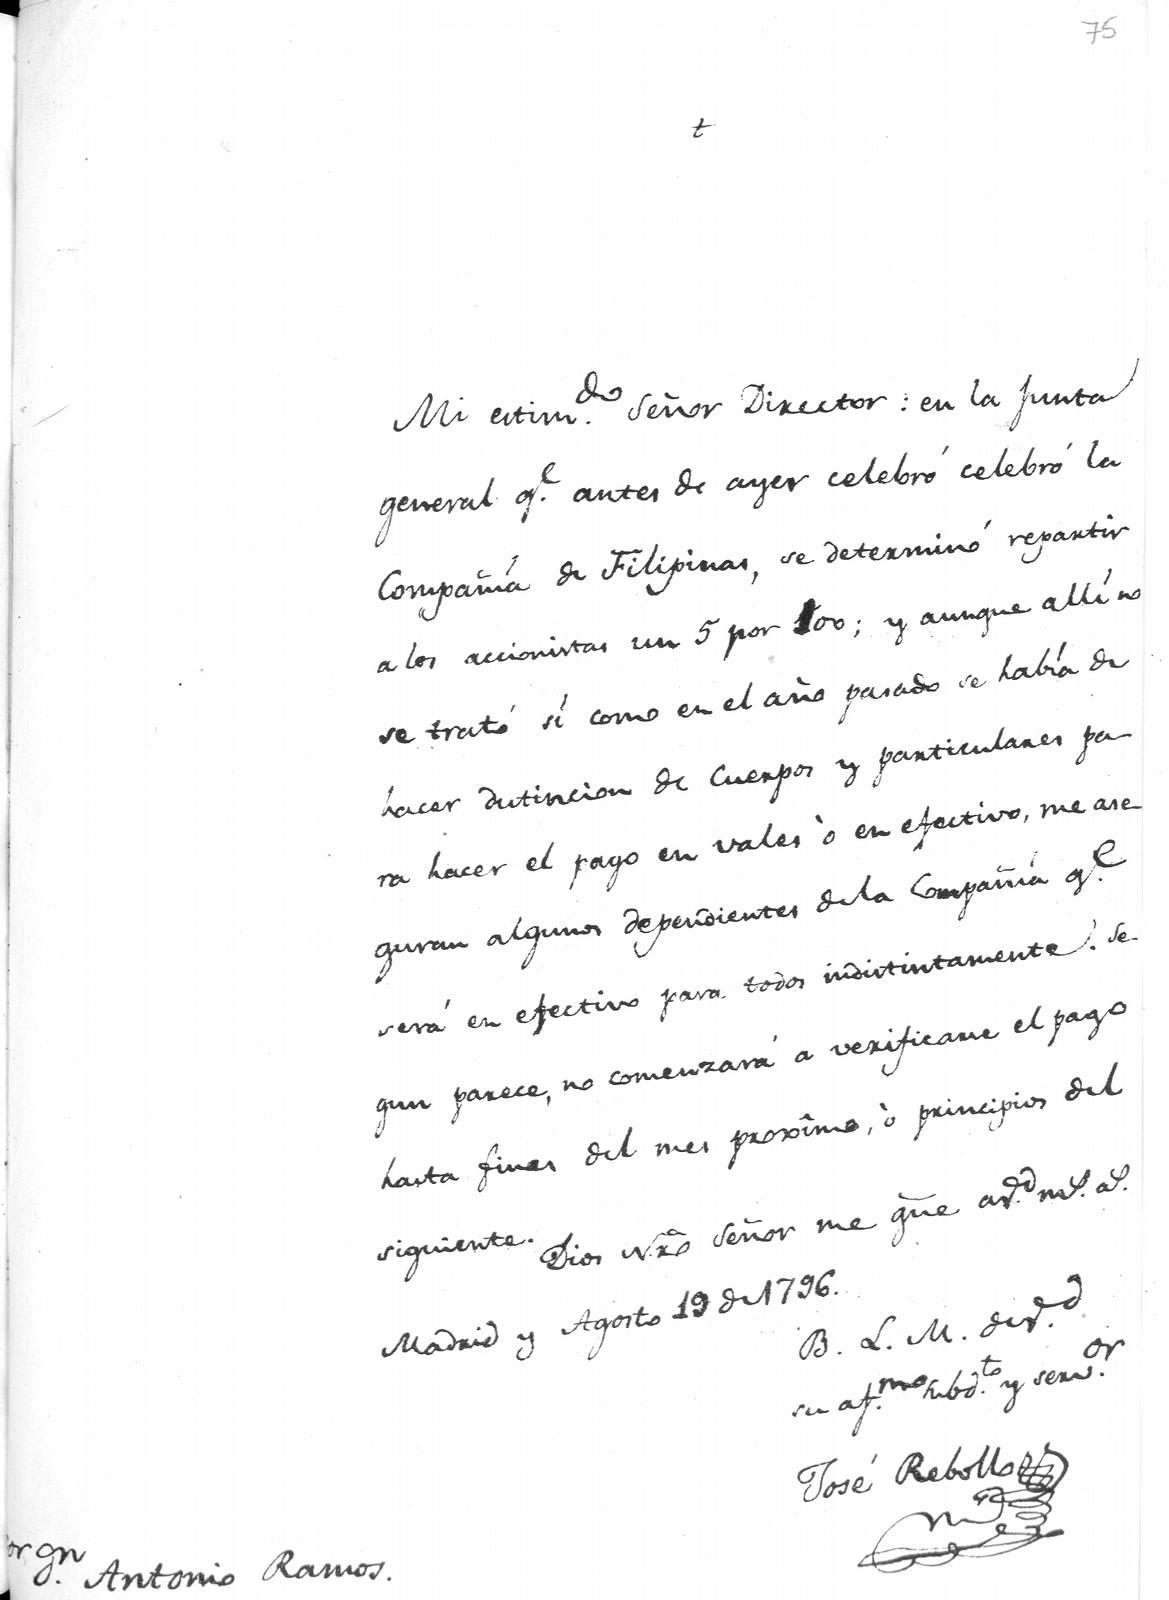 75
t
Mi estim.do Señor Director: en la Junta
general q.e antes de ayer celebró celebró la
Compañía de Filipinas, se determinó repartir
a los accionistas un 5 por 100; y aunque allí no
se trató si como en el año pasado se había de
hacer distincion de Cuerpos y particulares pa-
ra hacer el pago en vales ò en efectivo, me ase-
guran algunos dependientes de la Compañía q.e
será en efectivo para todos indistintamente. Se-
gun parece, no comenzará a verificarse el pago
hasta fines del mes proximo, ò principios del
siguiente. Dios Nrõ Señor me gũe a v.d m.s a.s
Madrid y Agosto 19 de 1796.
B. L. M. de v.d
su af.mo subd.to y serv.or
José Rebollo
or gn Antonio Ramos.